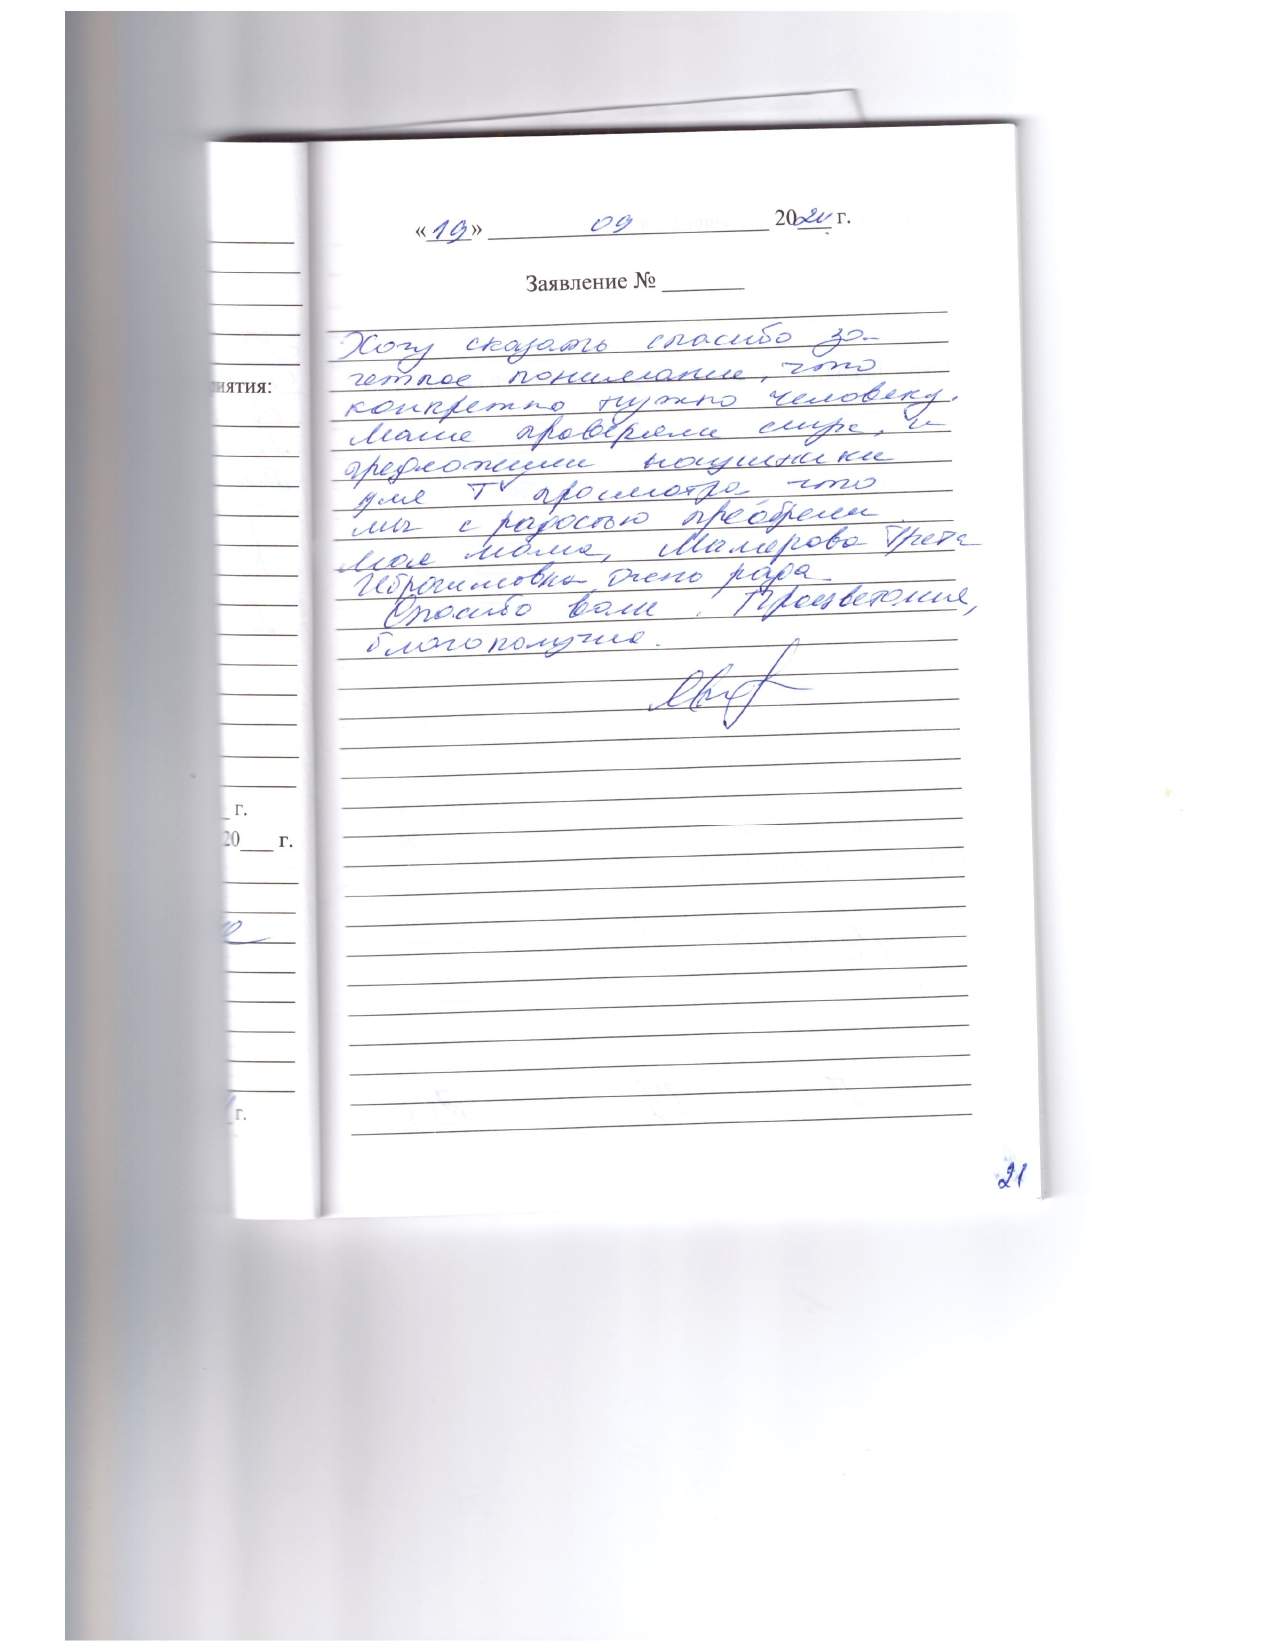 «19» 09 2021 г.
Заявление № ____
Хочу сказать спасибо за
четкое понимание, что
конкретно нужно человеку.
Маме проверяли слух, и
предложили наушники
для TV просмотра, что
мы с радостью преобрели
Моя мама, Грета
Ибрагимовна очень рада.
Спасибо вам. Процветания,
благополучия.
21
иятия:
г.
20___ г.
г.